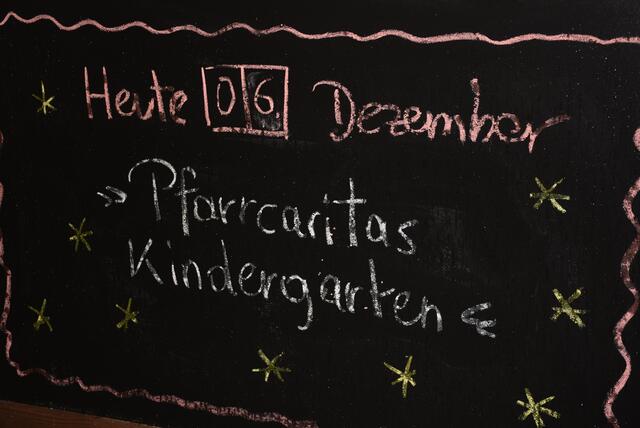 Heute 06. Dezember
» Pfarrcaritas
Kindergarten «